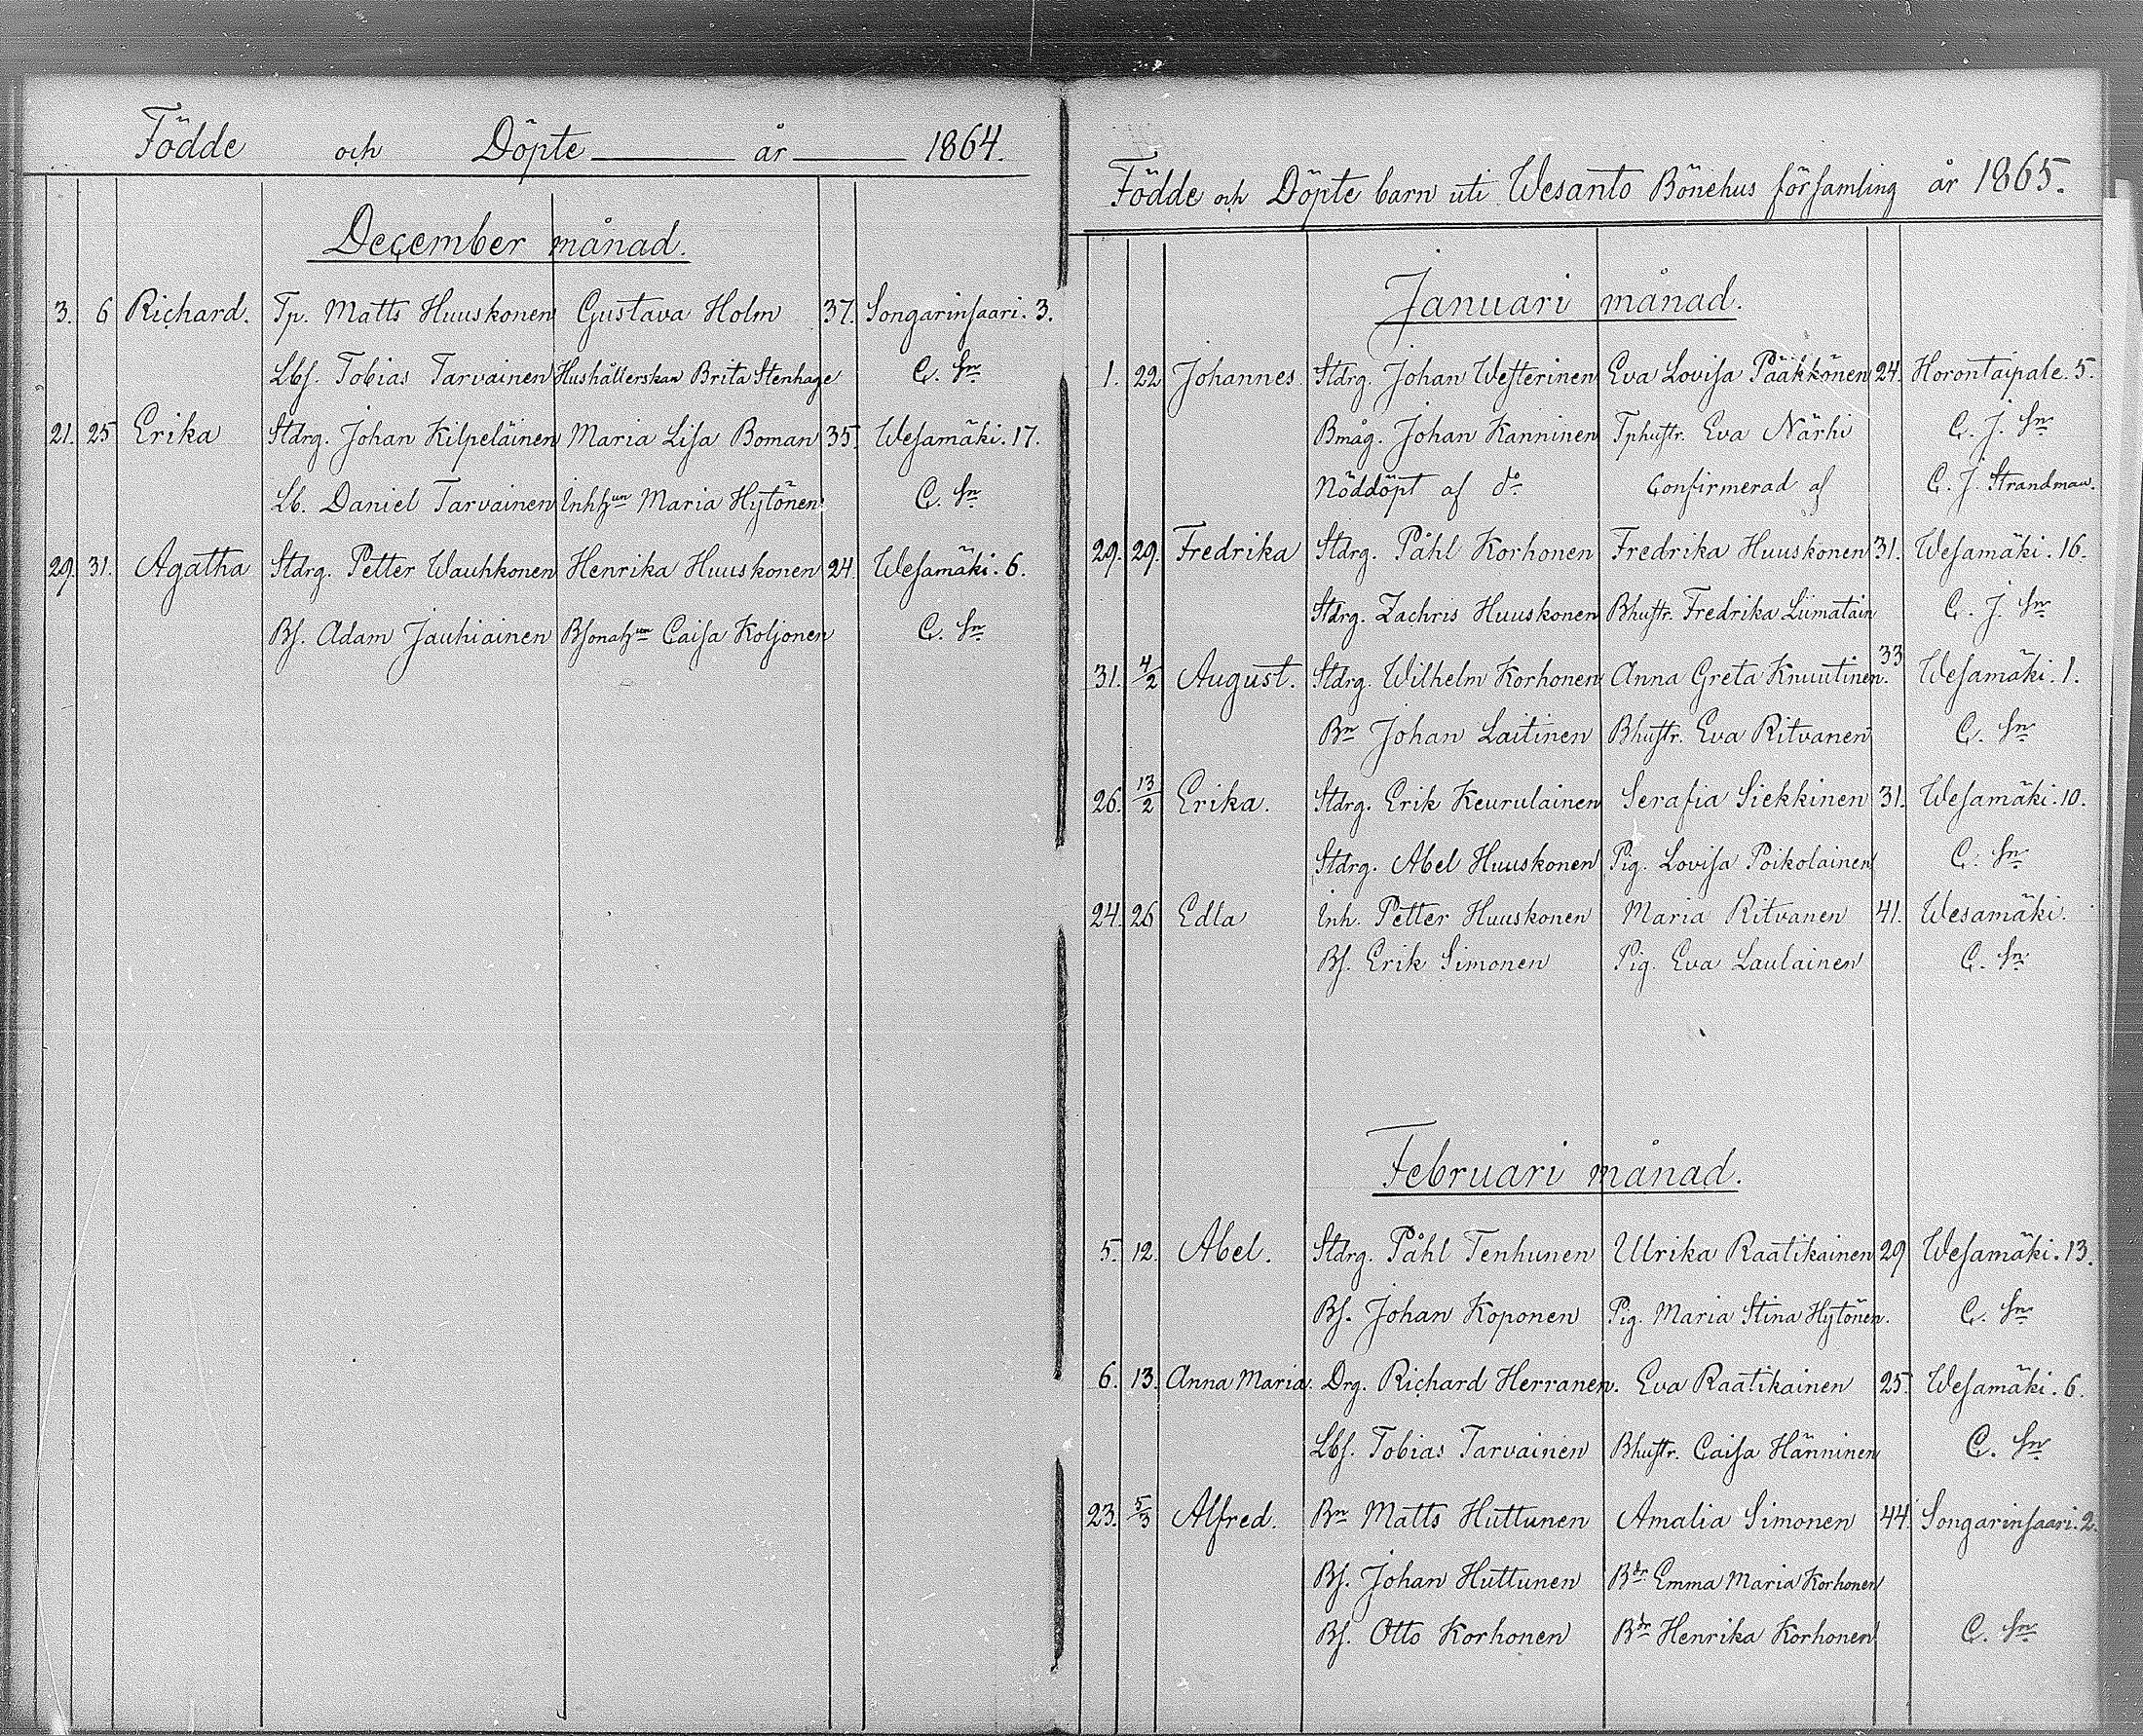 Födde och Döpte år 1864.
December månad.
3. 6 Richard. Tp. Matts Huuskonen Gustava Holm 37. Songarinsaari. 3.
Lbs. Tobias Tarvainen Hushållerskan Brita Stenhage C. Sn
21. 25 Erika Stdrg. Johan Kilpeläinen Maria Lisa Boman 35. Wesamäki. 17.
Lb. Daniel Tarvainen Inhhun Maria Hytönen C. Sn
29. 31. Agatha Stdrg. Petter Wauhkonen Henrika Huuskonen 24. Wesamäki. 6.
Bs. Adam Jauhiainen Bsonahun Caisa Koljonen C. Sn
Födde och Döpte barn uti Wesanto Bönehus församling år 1865.
Januari månad.
1. 22 Johannes Stdrg. Johan Westerinen Eva Lovisa Pääkkönen 24. Horontaipale. 5.
Bmåg. Johan Kanninen Tphustr. Eva Närhi C. J. Sn
Nöddöpt af do Confirmerad af C. J. Strandman.
29. 29. Fredrika Stdrg. Påhl Korhonen Fredrika Huuskonen 31. Wesamäki. 16.
Stdrg. Zachris Huuskonen Bhustr. Fredrika Liimatain C. J. Sn
31. 4/2 August. Stdrg. Wilhelm Korhonen Anna Greta Knuutinen. 33 Wesamäki. 1.
Bn Johan Laitinen Bhustr. Eva Ritvanen C. Sn
26. 13/2 Erika. Stdrg. Erik Keurulainen Serafia Siekkinen 31. Wesamäki. 10.
Stdrg. Abel Huuskonen Pig. Lovisa Poikolainen C. Sn
24. 26 Edla Inh. Petter Huuskonen Maria Ritvanen 41. Wesamäki.
Bs. Erik Simonen Pig. Eva Laulainen C. Sn
Februari månad.
5. 12. Abel. Stdrg. Påhl Tenhunen Ulrika Raatikainen 29 Wesamäki. 13.
Bs. Johan Koponen Pig. Maria Stina Hytönen. C. Sn
6. 13. Anna Maria. Drg. Richard Herranen. Eva Raatikainen 25. Wesamäki. 6.
Lbs. Tobias Tarvainen Bhustr. Caisa Hänninen C. Sn
23. 5/3 Alfred. Bn Matts Huttunen Amalia Simonen 44. Songarinsaari. 2.
Bs. Johan Huttunen Bdr Emma Maria Korhonen
Bs. Otto Korhonen Bdr Henrika Korhonen C. Sn